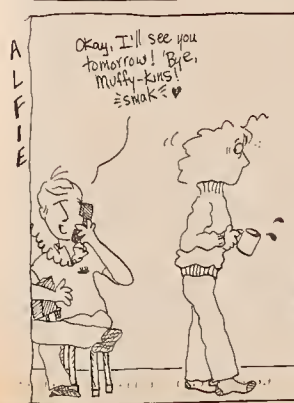 ALFIE
Okay, I'll see you
tomorrow! 'Bye,
Muffy-kins!
smak